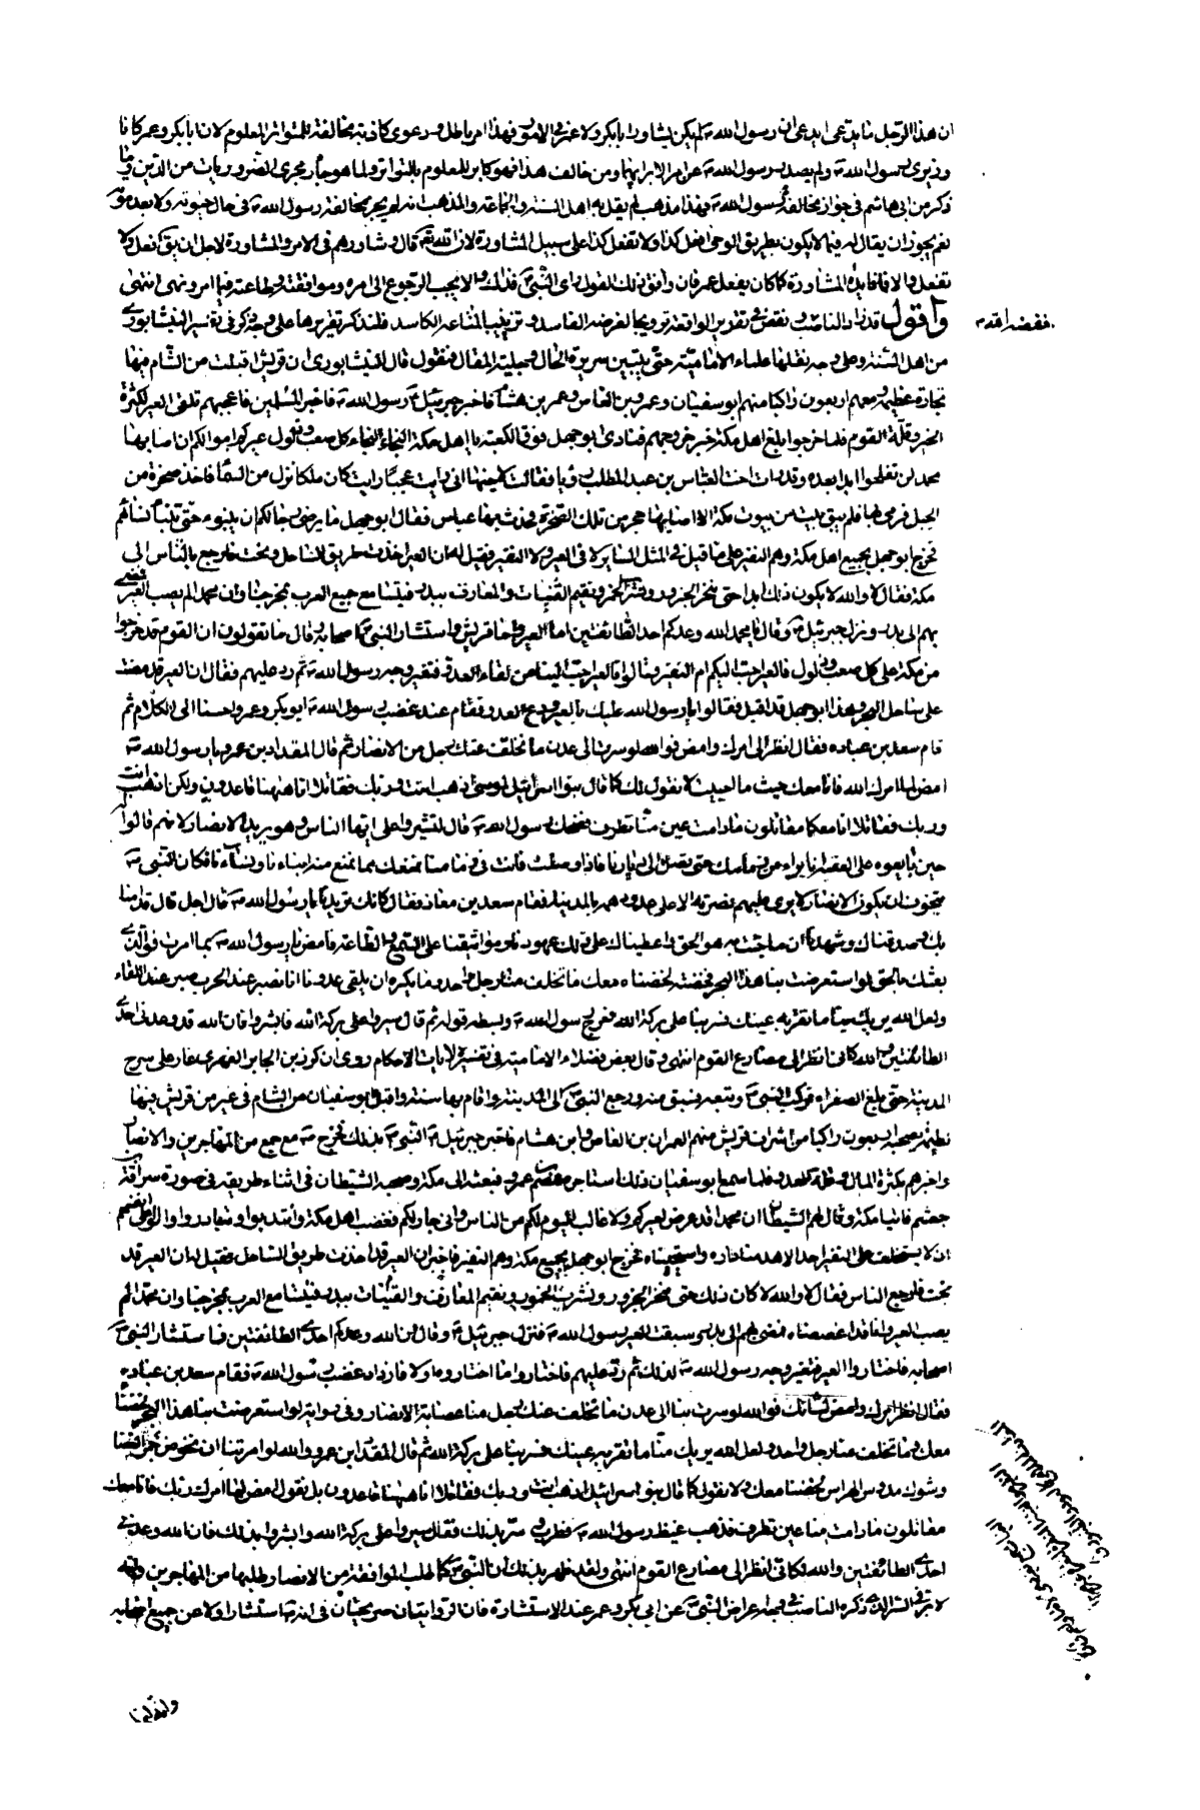 ان هذا الرجل يدعى ان رسول الله ص لم يكن يشاور ابابكر ولا عمر في الامور فهذا امر باطل ودعوى كاذبة مخالفة للمتواتر المعلوم لان ابابكر وعمر كانا
وزيرى رسول الله ص ولم يصدر رسول الله ص عن امر الا برايهما ومن خالف هذا فهو مكابر للمعلوم بالتواتر ولما هو جار مجرى الضروريات من الدين وما
ذكر من ابي هاشم في جواز مخالفة رسول الله ص فهذا مذهب لم يقل به اهل السنة والجماعة والمذهب انه لم يجز مخالفة رسول الله ص في حال حيوته ولا بعد موته
نعم يجوز ان يقال له فيما لا يكون بطريق الوحي افعل كذا ولا تفعل كذا على سبيل المشاورة لان الله تعالى قال وشاورهم في الامر والمشاورة لاجل ان يق افعل ولا
تفعل والا فما فايدة المشاورة كما كان يفعل عمر فان وافق ذلك القول راى النبي ص فذاك والا يجب الرجوع الى امره وموافقته واطاعته فيما امر ونهى انتهى
واقول قد زاد الناصب ونقص في تقرير الواقعة ترويجا لغرضه الفاسد وتزييفا لمتاعه الكاسد فلنذكر تقريرها على وجه ذكر في تفسير النيشابوري
من اهل السنة وعلى وجه نقلها علماء الامامية حتى يتبين سريرة الحال وجلية المقال فنقول قال النيشابوري ان قريش اقبلت من الشام فيها
تجارة عظيمة ومعهم اربعون راكبا منهم ابو سفيان وعمرو بن العاص وعمر بن هشام فاخبر جبرئيل رسول الله ص فاخبر المسلمين فاعجبهم تلقى العير لكثرة
الخير وقلة القوم فلما خرجوا بلغ اهل مكة خبر خروجهم فنادى ابو جهل فوق الكعبة يا اهل مكة النجاء النجاء على كل صعب وذلول عيركم اموالكم ان اصابها
محمد لن تفلحوا ابدا بعده وقد رات اخت العباس بن عبد المطلب رؤيا فقالت لاخيها اني رايت عجبا رايت كان ملكا نزل من السماء فاخذ صخرة من
الجبل فرمى بها فلم يبق بيت من بيوت مكة الا اصابها حجر من تلك الصخرة فحدث بها عباس فقال ابو جهل ما يرضى رجالكم ان يتنبوء حتى تتنبأ نسائهم
فخرج ابو جهل بجميع اهل مكة وهم النفير على ما قيل في المثل الساير لا في العير ولا النفير فقيل له ان العير اخذت طريق الساحل ونجت فارجع بالناس الى
مكة فقال لا والله لا يكون ذلك ابدا حتى ننحر الجزور ونشرب الخمور ونقيم القينات والمعازف ببدر فيتسامع جميع العرب بمخرجنا وان محمد الم يصب العير فمضى
بهم الى بدر ونزل جبرئيل ص وقال يا محمد الله وعدكم احد الطائفتين اما العير واما قريش واستشار النبي ص اصحابه قال ما تقولون ان القوم قد خرجوا
من مكة على كل صعب وذلول فالعير احب اليكم ام النفير وقالوا فالعير احب الينا من لقاء العدو فتغير وجه رسول الله ص ثم رد عليهم فقال ان العير قد مضت
على ساحل البحر وهذا ابو جهل قد اقبل فقالوا يا رسول الله عليك بالعير ودع العدو فقام عند غضب رسول الله ص ابو بكر وعمر واحسنا الى الكلام ثم
قام سعد بن عباده فقال انظر الى امرك وامض فوالله لو سرت الى عدن ما تخلف عنك رجل من الانصار ثم قال المقداد بن عمرو يا رسول الله ص
امض لما امرك الله فانا معك حيث ما احببت لا نقول لك كما قال بنو اسرائيل لموسى اذهب انت وربك فقاتلا انا ههنا قاعدون ولكن اذهب انت
وربك فقاتلا انا معكما مقاتلون ما دامت عين منا تطرف فضحك رسول الله ص قال ثم اشيروا على ايها الناس وهو يريد الانصار لانهم قالوا له
حين بايعوه على العقبة انا براء من ذمامك حتى تصل الى ديارنا فاذا وصلت فانت في ذمامنا نمنعك مما نمنع منه ابناءنا ونساءنا فكان النبي ص
يتخوف ان يكون الانصار لا يرى عليهم نصرته الا على عدو دهمه بالمدينة فقام سعد بن معاذ فقال كانك تريدنا يا رسول الله ص قال اجل قال قد امنا
بك وصدقناك وشهدنا ان ما جئت به هو الحق واعطيناك على ذلك عهودنا ومواثيقنا على السمع والطاعة فامض يا رسول الله ص بما امرت فوالذي
بعثك بالحق لو استعرضت بنا هذا البحر فخضته لخضناه معك ما تخلف منا رجل واحد وما نكره ان يلقى عدونا انا نصبر عند الحرب صبر عند اللقاء
ولعل الله يريك منا ما تقر به عينك فسر بنا على بركة الله ففرح رسول الله ص وبسطه قوله ثم قال سيروا على بركة الله فابشروا فان الله قد وعدني احدى
الطائفتين والله كاني انظر الى مصارع القوم انتهى وقال بعض فضلاء الامامية في تفسيره لايات الاحكام روى ان كرز بن الجابر الفهري غار على سرح
المدينة حتى بلغ الصفراء فركب النبي ص وتبعه فسبق منه ورجع النبي ص الى المدينة واقام بها سنة واقبل ابو سفيان من الشام في عير من قريش فيها
لطيمة بصحبة اربعون راكبا من اشراف قريش منهم العمران بن العاص وابن هشام فاخبر جبرئيل النبي ص بذلك فخرج ص مع جمع من المهاجرين والانصار
واخبرهم بكثرة المال وقلة العدو فلما سمع ابو سفيان ذلك استاجر ضمضم عمرو فبعثه الى مكة وصحبه الشيطان في اثناء طريقه في صورة سراقة بن
جعشم فاتيا مكة وقال لهم الشيطان ان محمدا قد عرض لعيركم ولا غالب لكم اليوم من الناس واني جار لكم فغضب اهل مكة وانتدبوا وتعاقدوا
ان لا يتخلف على النفير احد الا هدمنا داره واستبحناه فخرج ابو جهل بجميع مكة وهم النفير فاخبر ان العير قد اخذت طريق الساحل فقيل له ان العير قد
نجت فارجع الناس فقال لا والله لا كان ذلك حتى ننحر الجزور ونشرب الخمور ونقيم المعازف والقينات ببدر فيتسامع العرب بمخرجنا وان محمدا لم
يصب العير وانا قد اغصصناه فمضى بهم الى بدر وسبقت العير رسول الله ص فنزل جبرئيل وقال ان الله وعدكم احدى الطائفتين فاستشار النبي ص
اصحابه فاختاروا العير فتغير وجه رسول الله ص لذلك ثم رد عليهم فاختاروا ما اختاروه اولا فازداد غضب رسول الله ص فقام سعد بن عباده
فقال انظر امرك وامض لشانك فوالله لو سرت بنا الى عدن ما تخلف عنك رجل منا عصابة الانصار وفي رواية لو استعرضت بنا هذا البحر لخضنا
معك وما تخلف عنا رجل واحد ولعل الله يريك منا ما تقر به عينك فسر بنا على بركة الله ثم قال المقداد بن عمرو والله لو امرتنا ان نخوض جمر الغضا
وشوك الهراس لخضنا معك ولا نقول كما قال بنو اسرائيل اذهب انت وربك فقاتلا انا ههنا قاعدون بل نقول امض لما امرك ربك فانا معك
مقاتلون ما دامت منا عين تطرف فذهب غيظ رسول الله ص فطرب وسر بذلك فقال سيروا على بركة الله وابشروا بذلك فان الله وعدني
احدى الطائفتين والله لكاني انظر الى مصارع القوم انتهى ولقد ظهر بذلك ان النبي ص كما طلب الموافقة من الانصار طلبها من المهاجرين وانه
لا تر في السر الذي ذكره الناصب في وجه اعراض النبي ص عن ابي بكر وعمر عند الاستشارة فان الروايتان صريحتان في انه ص استشار اولا من جميع اصحابه